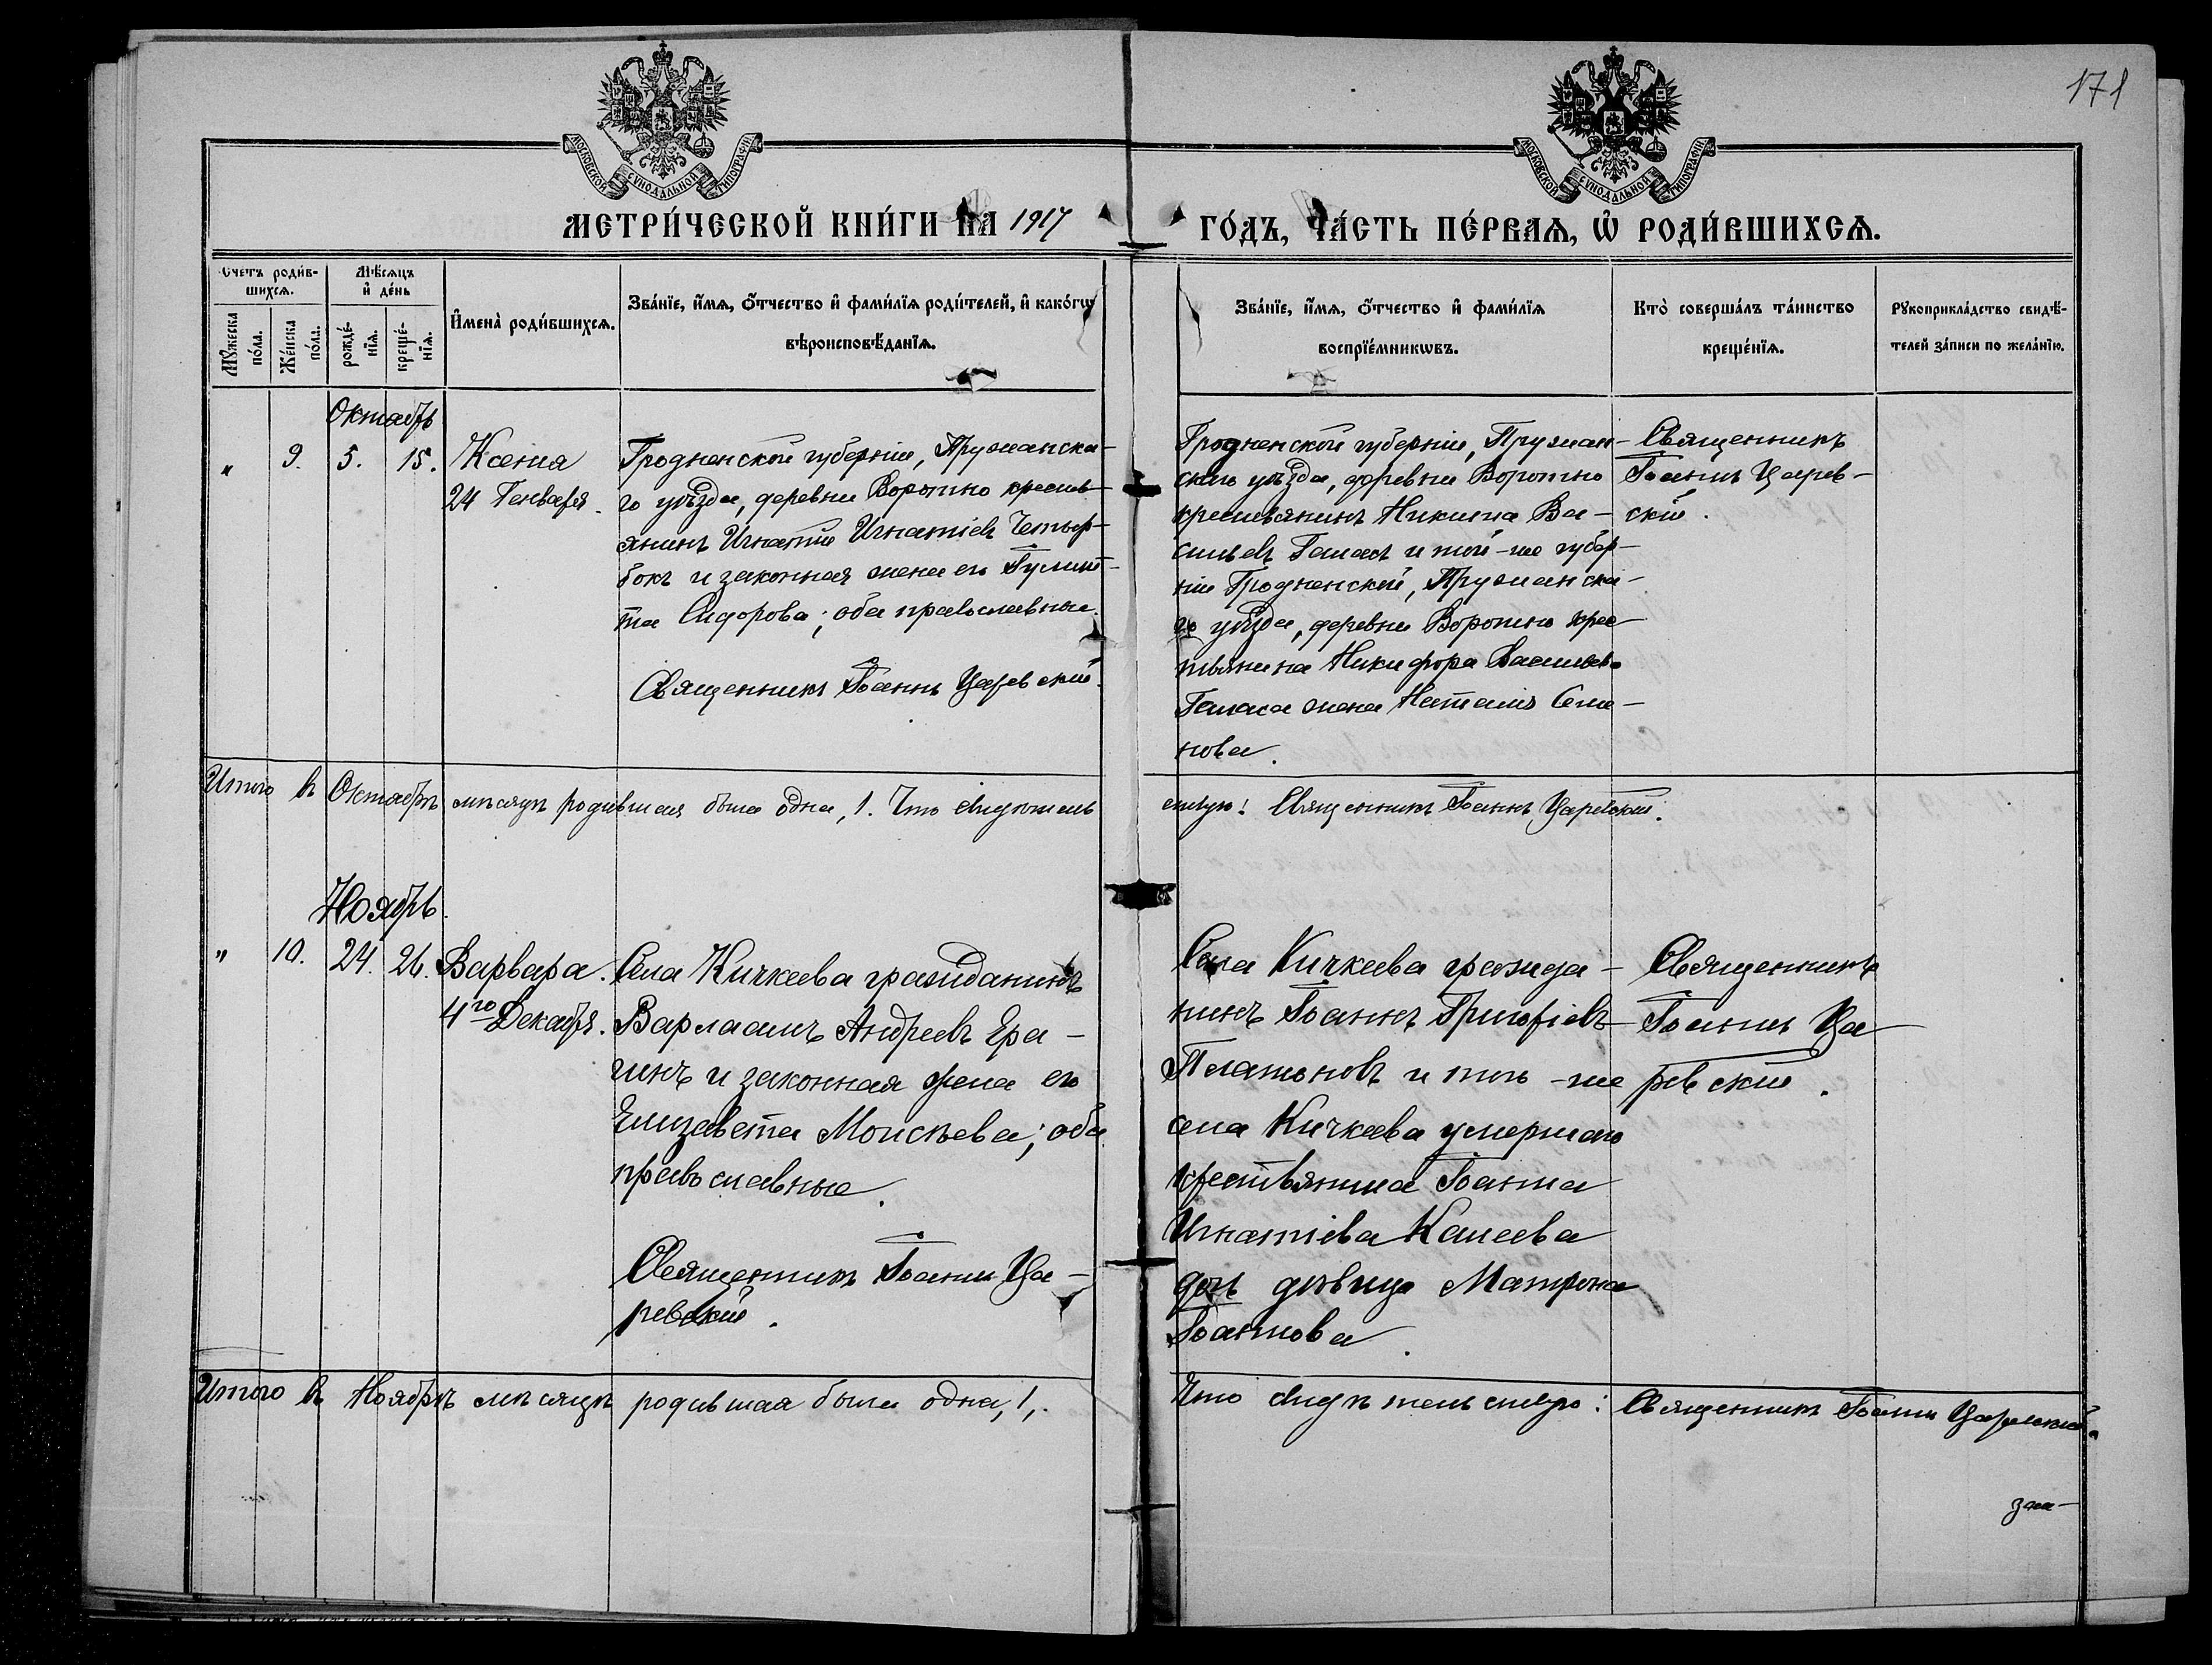 171
МОСКОВСКОЙ СУНОДАЛЬНОЙ ТИПОГРАФІИ.
МОСКОВСКОЙ СУНОДАЛЬНОЙ ТИПОГРАФІИ.
МЕТРИ́ЧЕСКОЙ КНИ́ГИ НА 1917 ГО́ДЪ, ЧА́СТЬ ПЕ́РВАѦ, Ѡ҆ РОДИ́ВШИХСѦ.
Счетъ роди́в-
шихсѧ.
Мѣ́сѧцъ
и҆ де́нь
Мꙋ́жеска
по́ла.
Же́нска
по́ла.
рожде́-
нїѧ.
креще́-
нїѧ.
И҆мена̀ роди́вшихсѧ.
Зва́нїе, и҆́мѧ, ѻ҆́тчество и҆ фами́лїѧ роди́телей, и҆ како́гѡ
вѣроисповѣ́данїѧ.
Зва́нїе, и҆́мѧ, ѻ҆́тчество и҆ фами́лїѧ
воспрїе́мникѡвъ.
Кто̀ соверша́лъ та́инство
креще́нїѧ.
Рꙋкоприкла́дство свидѣ́-
телей за́писи по жела́нїю.
Октябрь
" 9. 5. 15. Ксенія
24 Генваря.
Гродненской губерніи, Пружанска-
го уѣзда, деревни Воротно крестья-
янинъ Игнатій Игнатіевъ Четыр-
бокъ и законная жена его Іулит-
та Сидорова; оба православные.
Священникъ Іоаннъ Царевскій.
Гродненской губерніи, Пружан-
скаго уѣзда, деревни Воротно
крестьянинъ Никита Ва-
сильевъ Галасъ и той-же губер-
ніи Гродненской, Пружанска-
го уѣзда, деревни Воротно крес
тьянина Никифора Васильева
Галаса жена Наталія Семе-
нова.
Священникъ
Іоаннъ Царев-
скій.
Итого въ Октябрѣ мѣсяцѣ родившаяся была одна, 1. Что свидѣтель
ствую: Священникъ Іоаннъ Царевскій.
Ноябрь.
" 10. 24. 26. Варвара.
4го Декабря.
Села Кичкеева гражданинъ
Варлаамъ Андреевъ Ера-
гинъ и законная жена его
Елизавета Моисѣева; оба
православные.
Священникъ Іоаннъ Ца-
ревскій.
Села Кичкеева гражда-
нинъ Іоаннъ Григоріевъ
Платоновъ и того-же
села Кичкеева умершаго
крестьянина Іоанна
Игнатіева Калеева
дочь дѣвица Матрона
Іоаннова.
Священникъ
Іоаннъ Ца
ревскій.
Итого въ Ноябрѣ мѣсяцѣ родившая была одна, 1,.
Что свидѣтельствую: Священникъ Іоаннъ Царевскій.